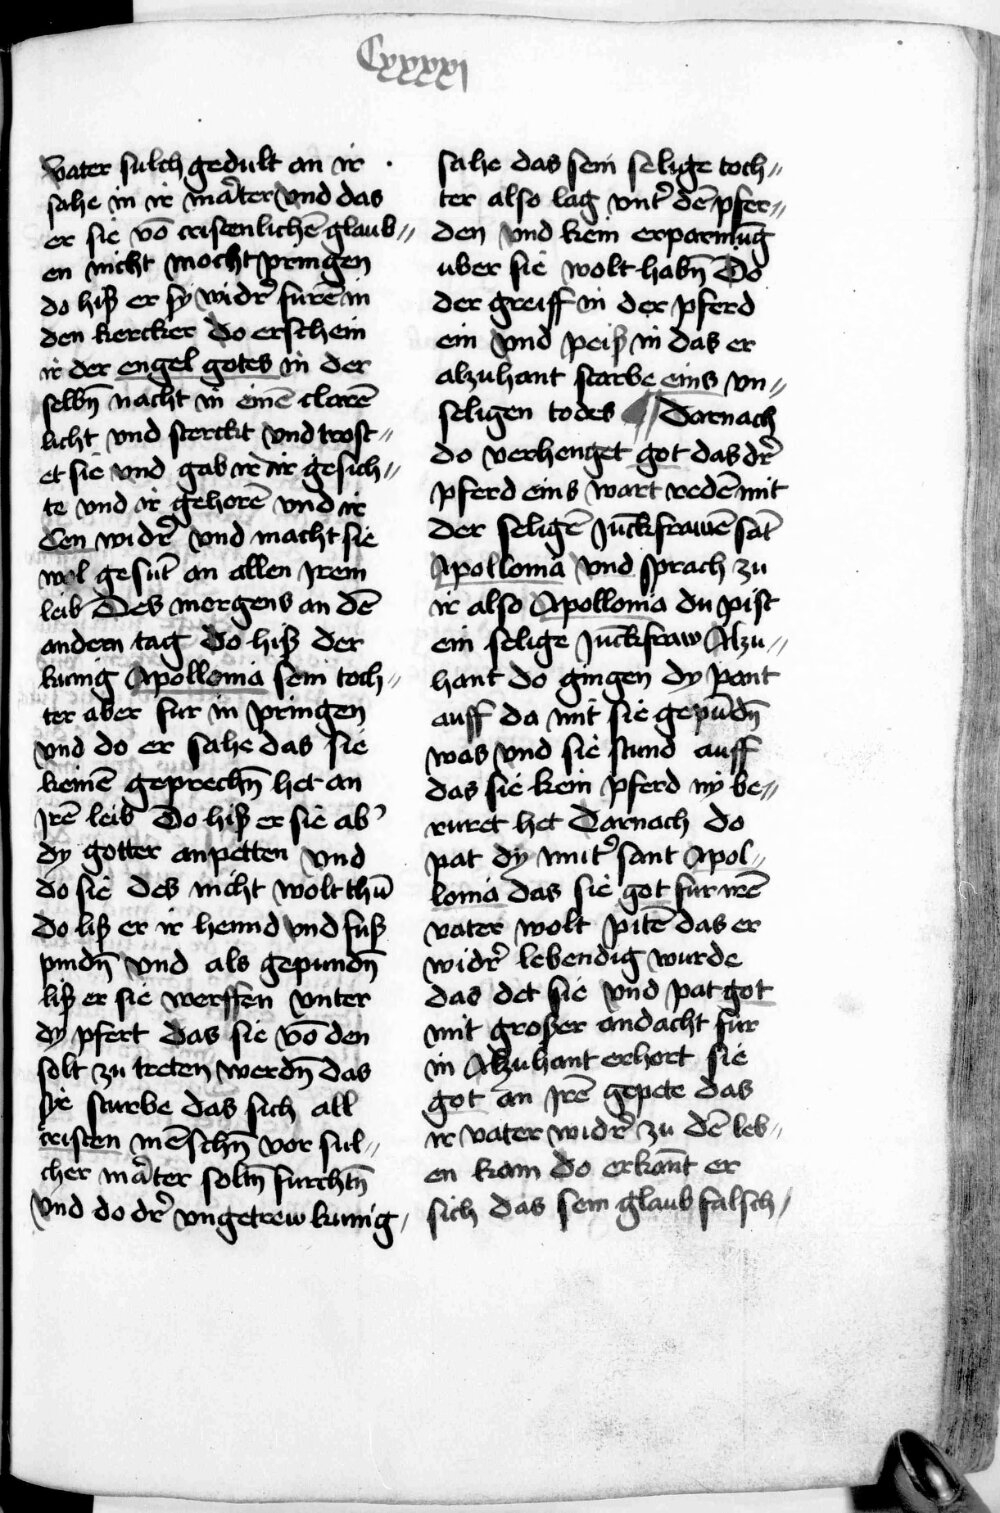 Cxxxxi
vater sulch gedult an ir
sahe in ir mater vnd das
er sie vō cristenlichē glaub⸗
en nicht mocht pringen
do hiß er sy widr᾽ furē in
den kercker do erschein
ir der engel gotes in der
selbn̄ nacht in einē clarē
licht vnd sterckt vnd trost⸗
et sie vnd gab ir ir gesich⸗
te vnd ir gehorē vnd ir
widr᾽ vnd macht sie
wol gesūt an allen irem
leib Des morgens an dē
andern tag do hiß der
kunig Apollonia sein toch⸗
ter aber fur in pringen
vnd do er sahe das sie
keinē geprechn̄ het an
irē leib Do hiß er sie ab᾽
dy gotter anpetten vnd
do sie des nicht wolt thū
do liß er ir hennd vnd fuß
pindn̄ vnd als gepundn̄
liß er sie werffen vnter
dy pfert das sie vō den
solt zu treten werdn̄ das
sye sturbe das sich all
cristen mēschn̄ vor sul⸗
cher māter soltn̄ furchtn̄
vnd do dr᾽ vngetrew kunig
sahe das sein selige toch⸗
ter also lag vnt᾽ dē pfer⸗
den vnd kein erparmūg
uber sie wolt habn̄ Do
der greiff in der pferd
ein vnd peiß in das er
alzuhant starbe eins vn⸗
seligen todes Darnach
do verhenget got das dr᾽
pferd eins wart redē mit
der seligē Junckfrawē sāt
Apollonia vnd sprach zu
ir also Apollonia du pist
ein selige Junckfraw Alzu⸗
hant do gingen dy pant
auff da mit sie gepūdn̄
was vnd sie stund auff
das sie kein pferd ny be⸗
ruret het Darnach do
pat dy mut᾽ sant Apol⸗
lonia das sie got fur irē
vater wolt pitē das er
widr᾽ lebendig wurde
das det sie vnd pat got
mit großer andacht fur
in Alzuhant erhort sie
got an irē gepete das
ir vater widr᾽ zu dē leb⸗
en kam do erkant er
sich das sein glaub falsch